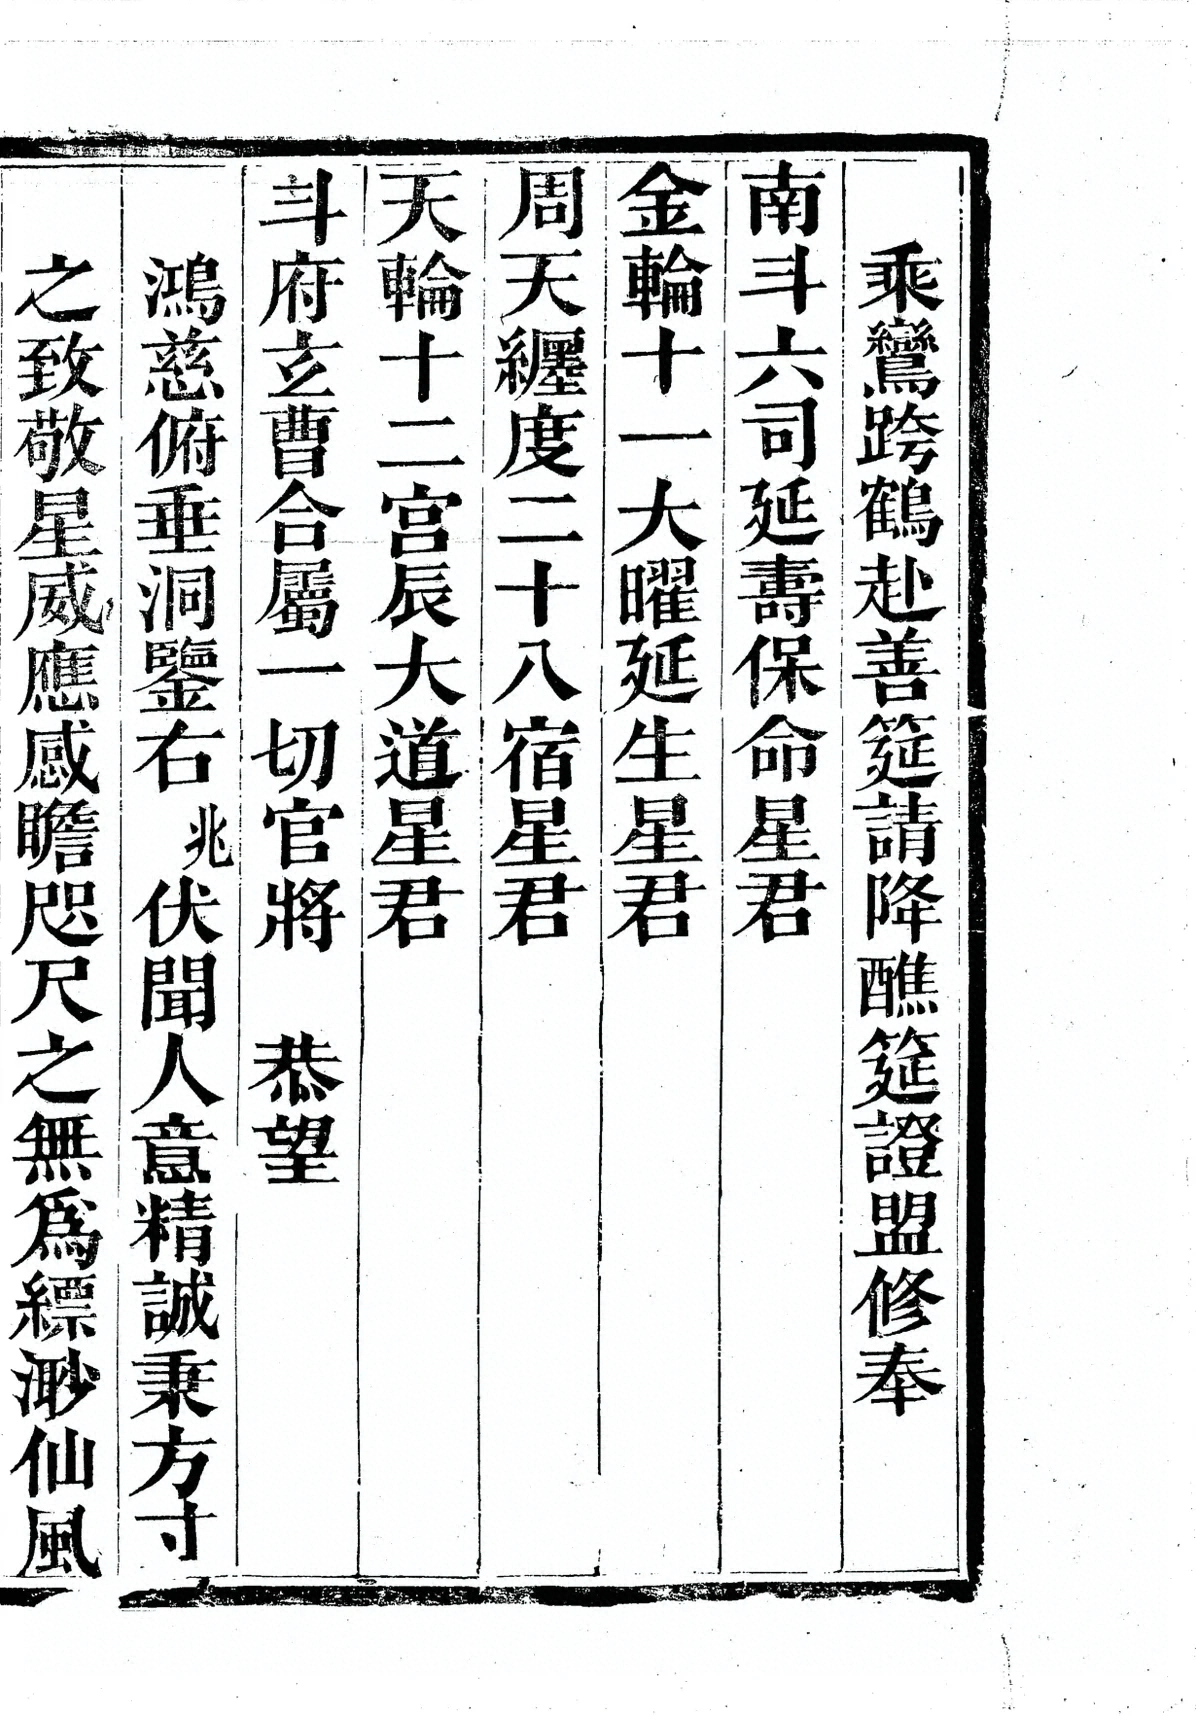 乘鸞跨鶴赴善筵請降醮筵證盟修奉
南斗六司延壽保命星君
金輪十一大曜延生星君
周天纏度二十八宿星君
天輪十二宮辰大道星君
斗府玄曹合屬一切官將　恭望
鴻慈俯垂洞鑒右兆伏聞人意精誠秉方寸
之致敬星威應感瞻咫尺之無爲縹渺仙風